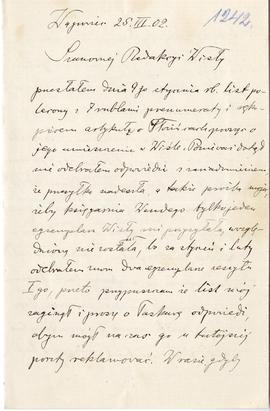 25.III.02. 1242.
Szanownej Redakcyi Wisły
posłałem dnia 9go stycznia rb. list po
lecony z 7 rublami prenumeraty i ręko
pisem artykułu o prosząc o
jego umieszczenie w Wiśle. Ponieważ dotąd
nie odebrałem odpowiedzi z zawiadomieniem,
że przesyłka nadeszła, a także prośba moja
żeby księgarnia Wendego tylko jeden
egzemplarz Wisły mi posyłała, uwzglę
dnioną nie została, bo za styczeń i luty
odebrałem znowu dwa egzemplarze zeszytu
Igo, przeto przypuszczam że list mój
zaginął i proszę o łaskawą odpowiedź,
abym mógł na czas go w tutejszej
poczty reklamować. W razie, gdyby